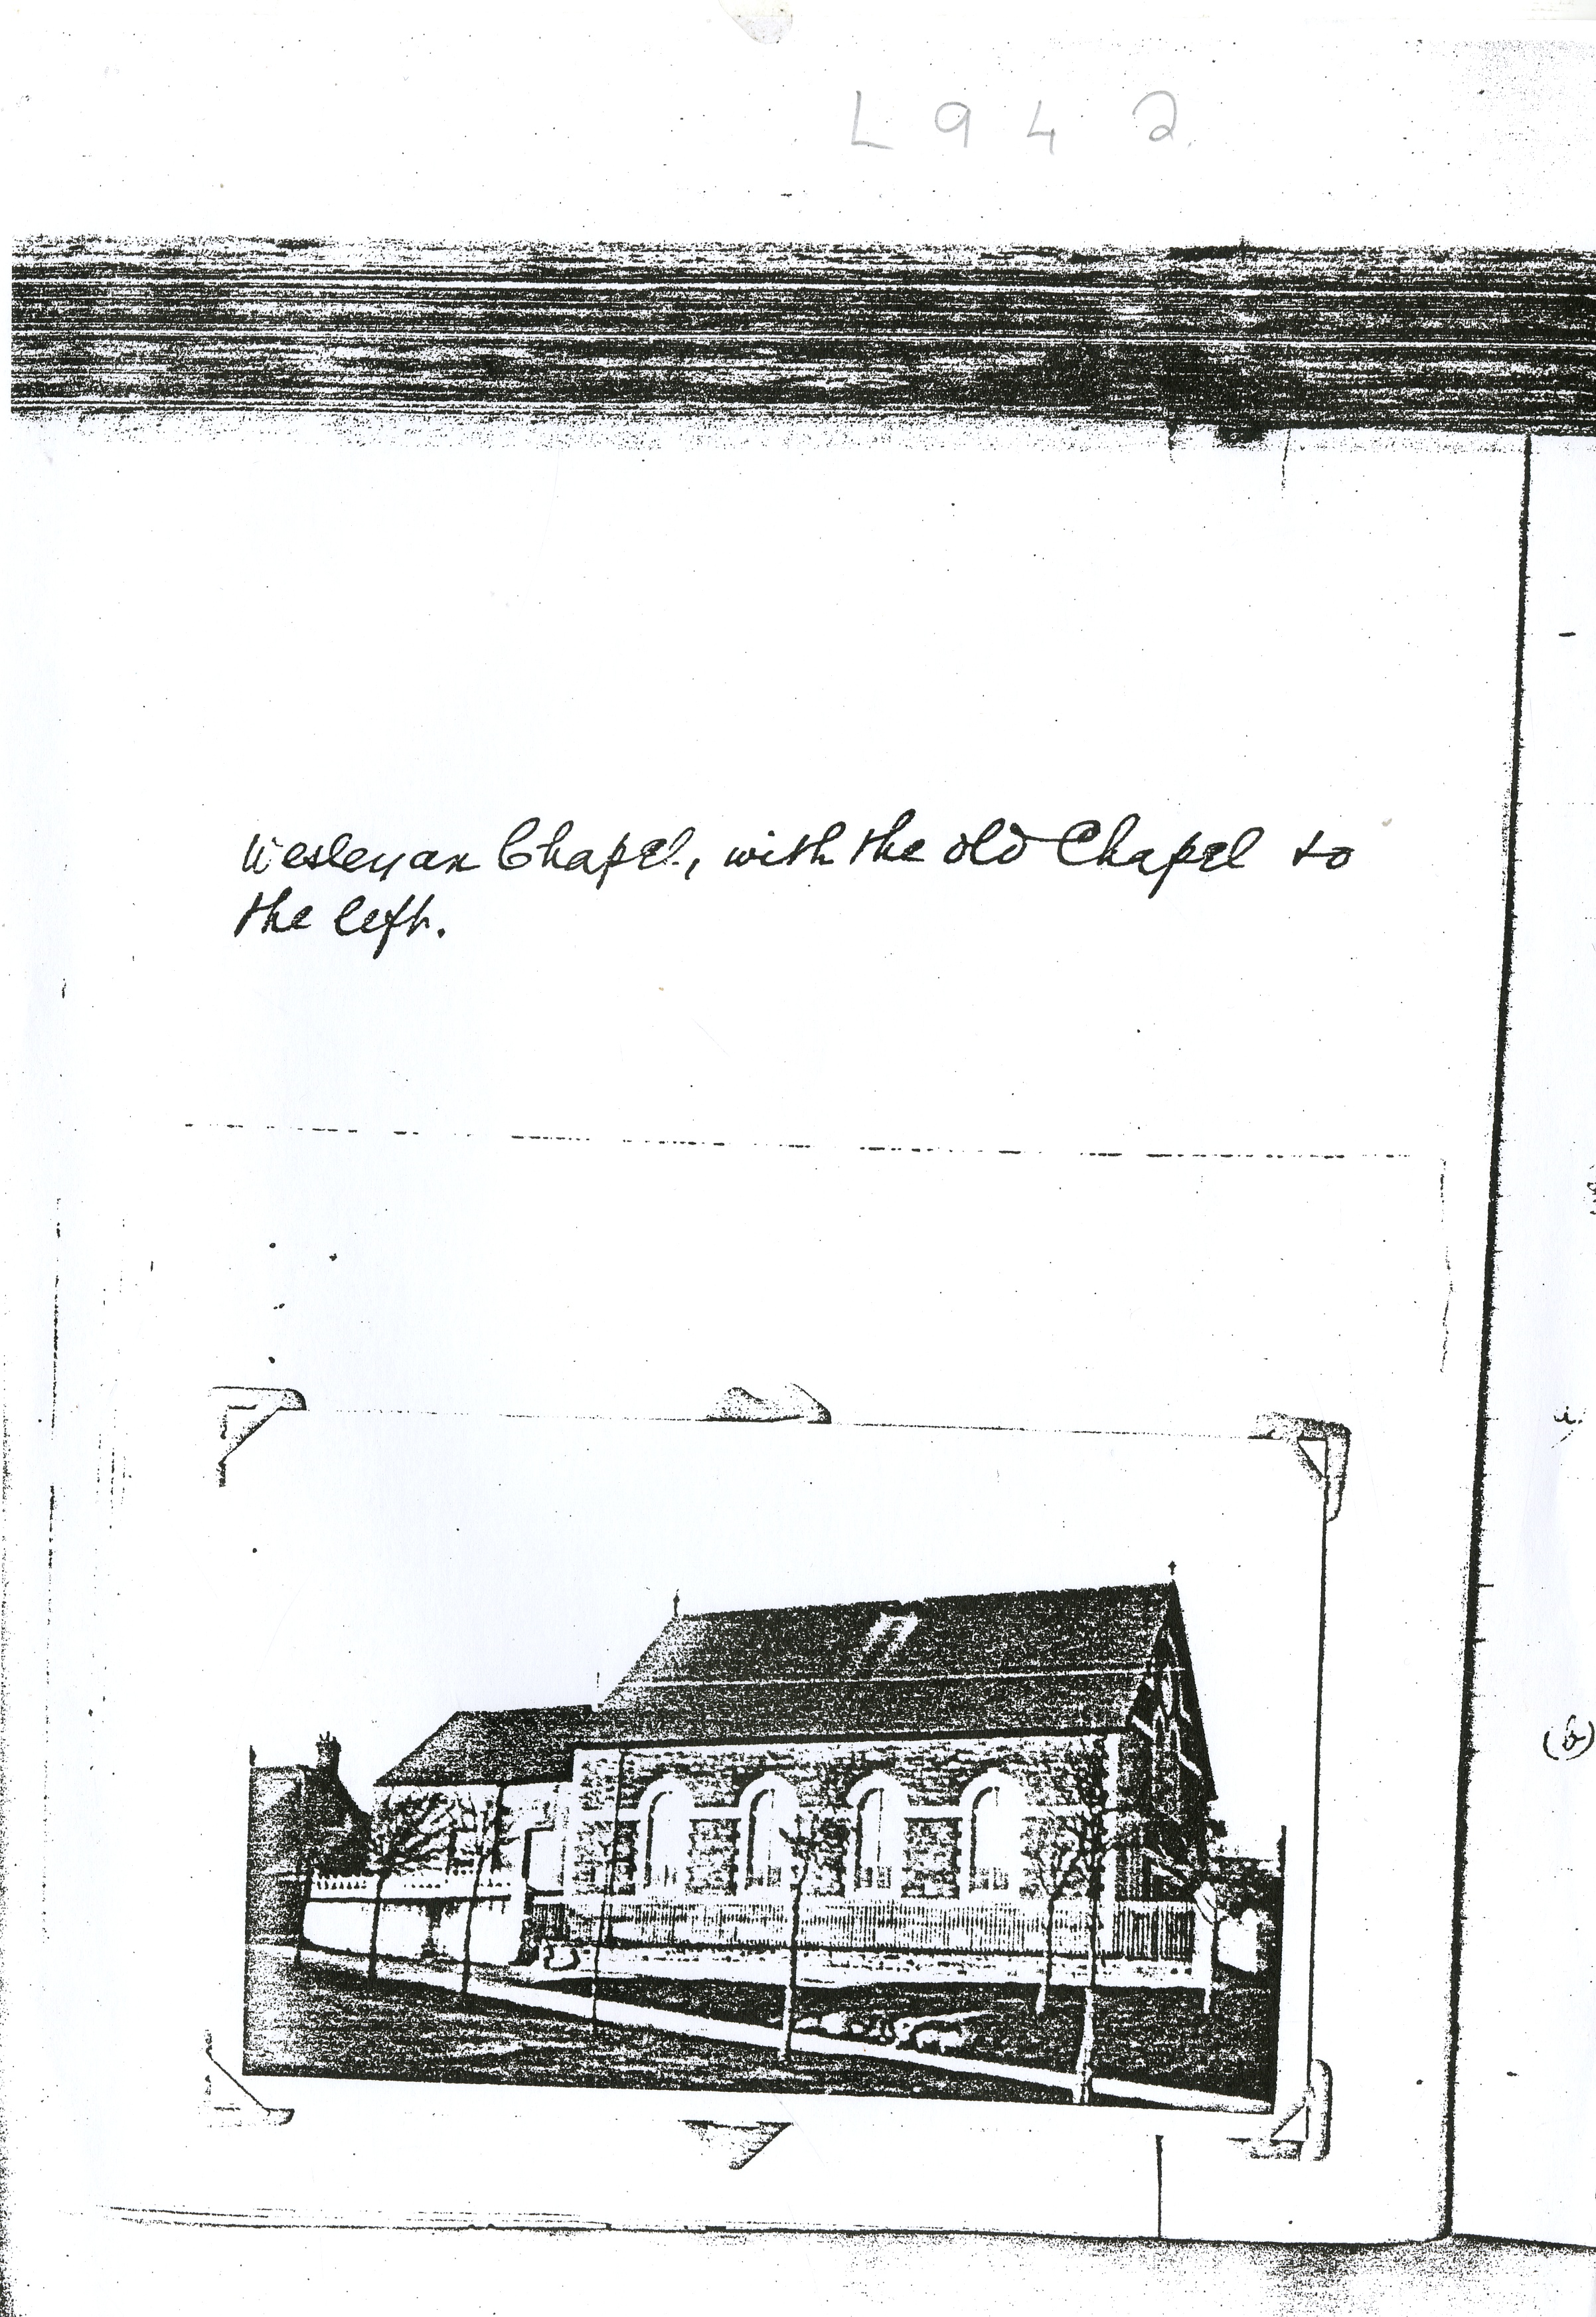 L942
Wesleyan Chapel, with the old Chapel to
the left.
(b)